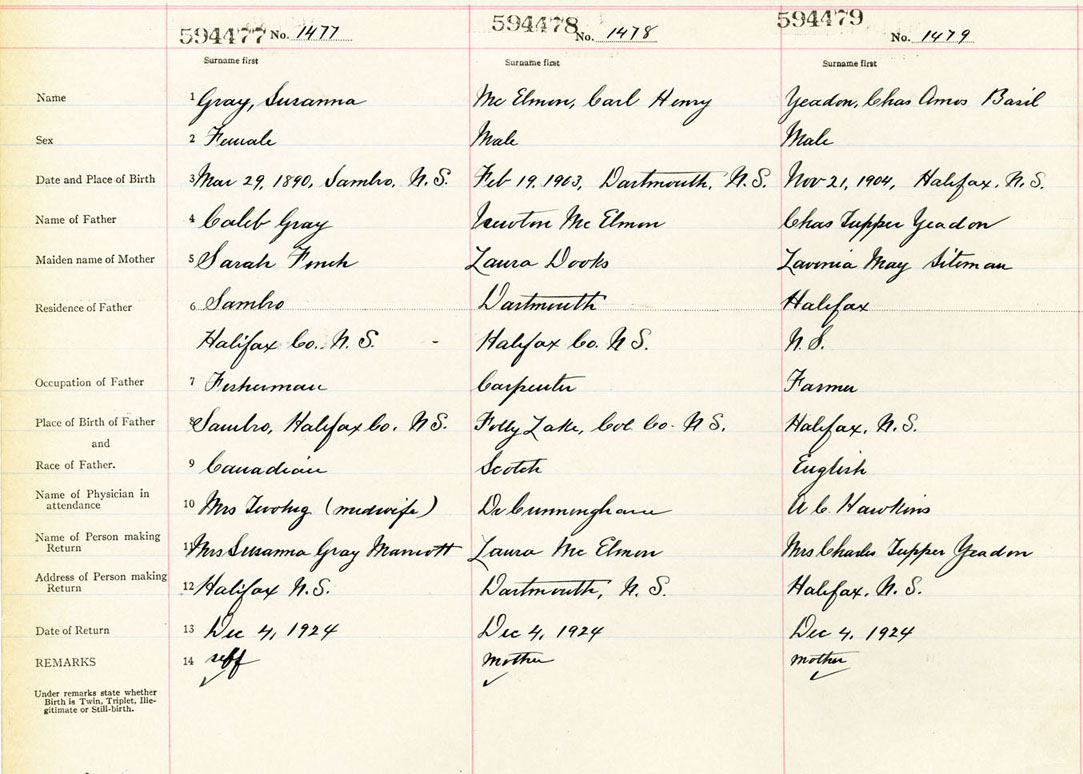 594477 No. 1477 594478 No. 1478 594479 No. 1479
Surname first Surname first Surname first
Name 1 Gray, Susanna Mc Elmon, Carl Henry Yeadon, Chas Amos Basil
Sex 2 Female Male Male
Date and Place of Birth 3 Mar 29, 1890, Sambro, N.S. Feb 19, 1903, Dartmouth, N.S. Nov 21, 1904, Halifax, N.S.
Name of Father 4 Caleb Gray Newton Mc Elmon Chas Tupper Yeadon
Maiden name of Mother 5 Sarah Finch Laura Dooks Lavenia May Siteman
Residence of Father 6 Sambro Dartmouth Halifax
Halifax Co. N.S. Halifax Co. N.S. N.S.
Occupation of Father 7 Fisherman Carpenter Farmer
Place of Birth of Father 8 Sambro, Halifax Co. N.S. Folly Lake, Col Co. N.S. Halifax, N.S.
and
Race of Father. 9 Canadian Scotch English
Name of Physician in
attendance 10 Mrs Twohig (midwife) Dr Cunningham A C. Hawkins
Name of Person making
Return 11 Mrs Susanna Gray Marriott Laura Mc Elmon Mrs Charles Tupper Yeadon
Address of Person making
Return 12 Halifax N.S. Dartmouth, N.S. Halifax, N.S.
Date of Return 13 Dec 4, 1924 Dec 4, 1924 Dec 4, 1924
REMARKS 14 self mother mother
Under remarks state whether
Birth is Twin, Triplet, Ille-
gitimate or Still-birth.